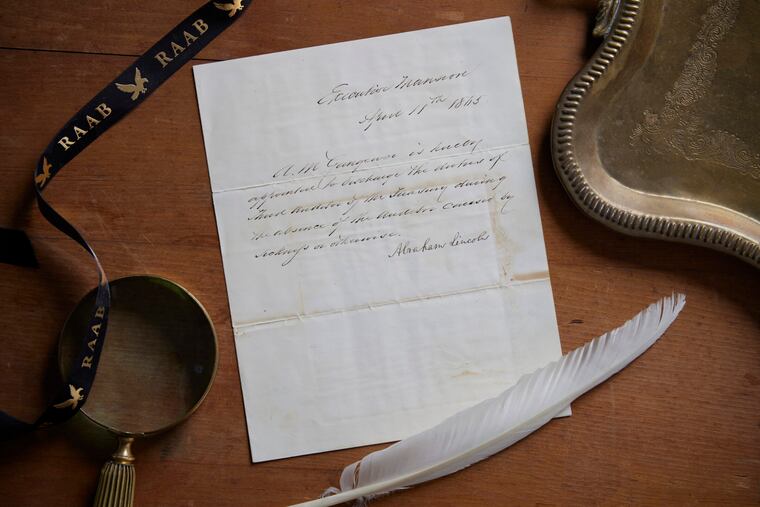 RAAB
RAAB
RAAB
Executive Mansion
April 11th 1865
A. M. Gangewer is hereby
appointed to discharge the duties of
Third Auditor of the Treasury during
the absence of the Auditor caused by
sickness or otherwise.
Abraham Lincoln